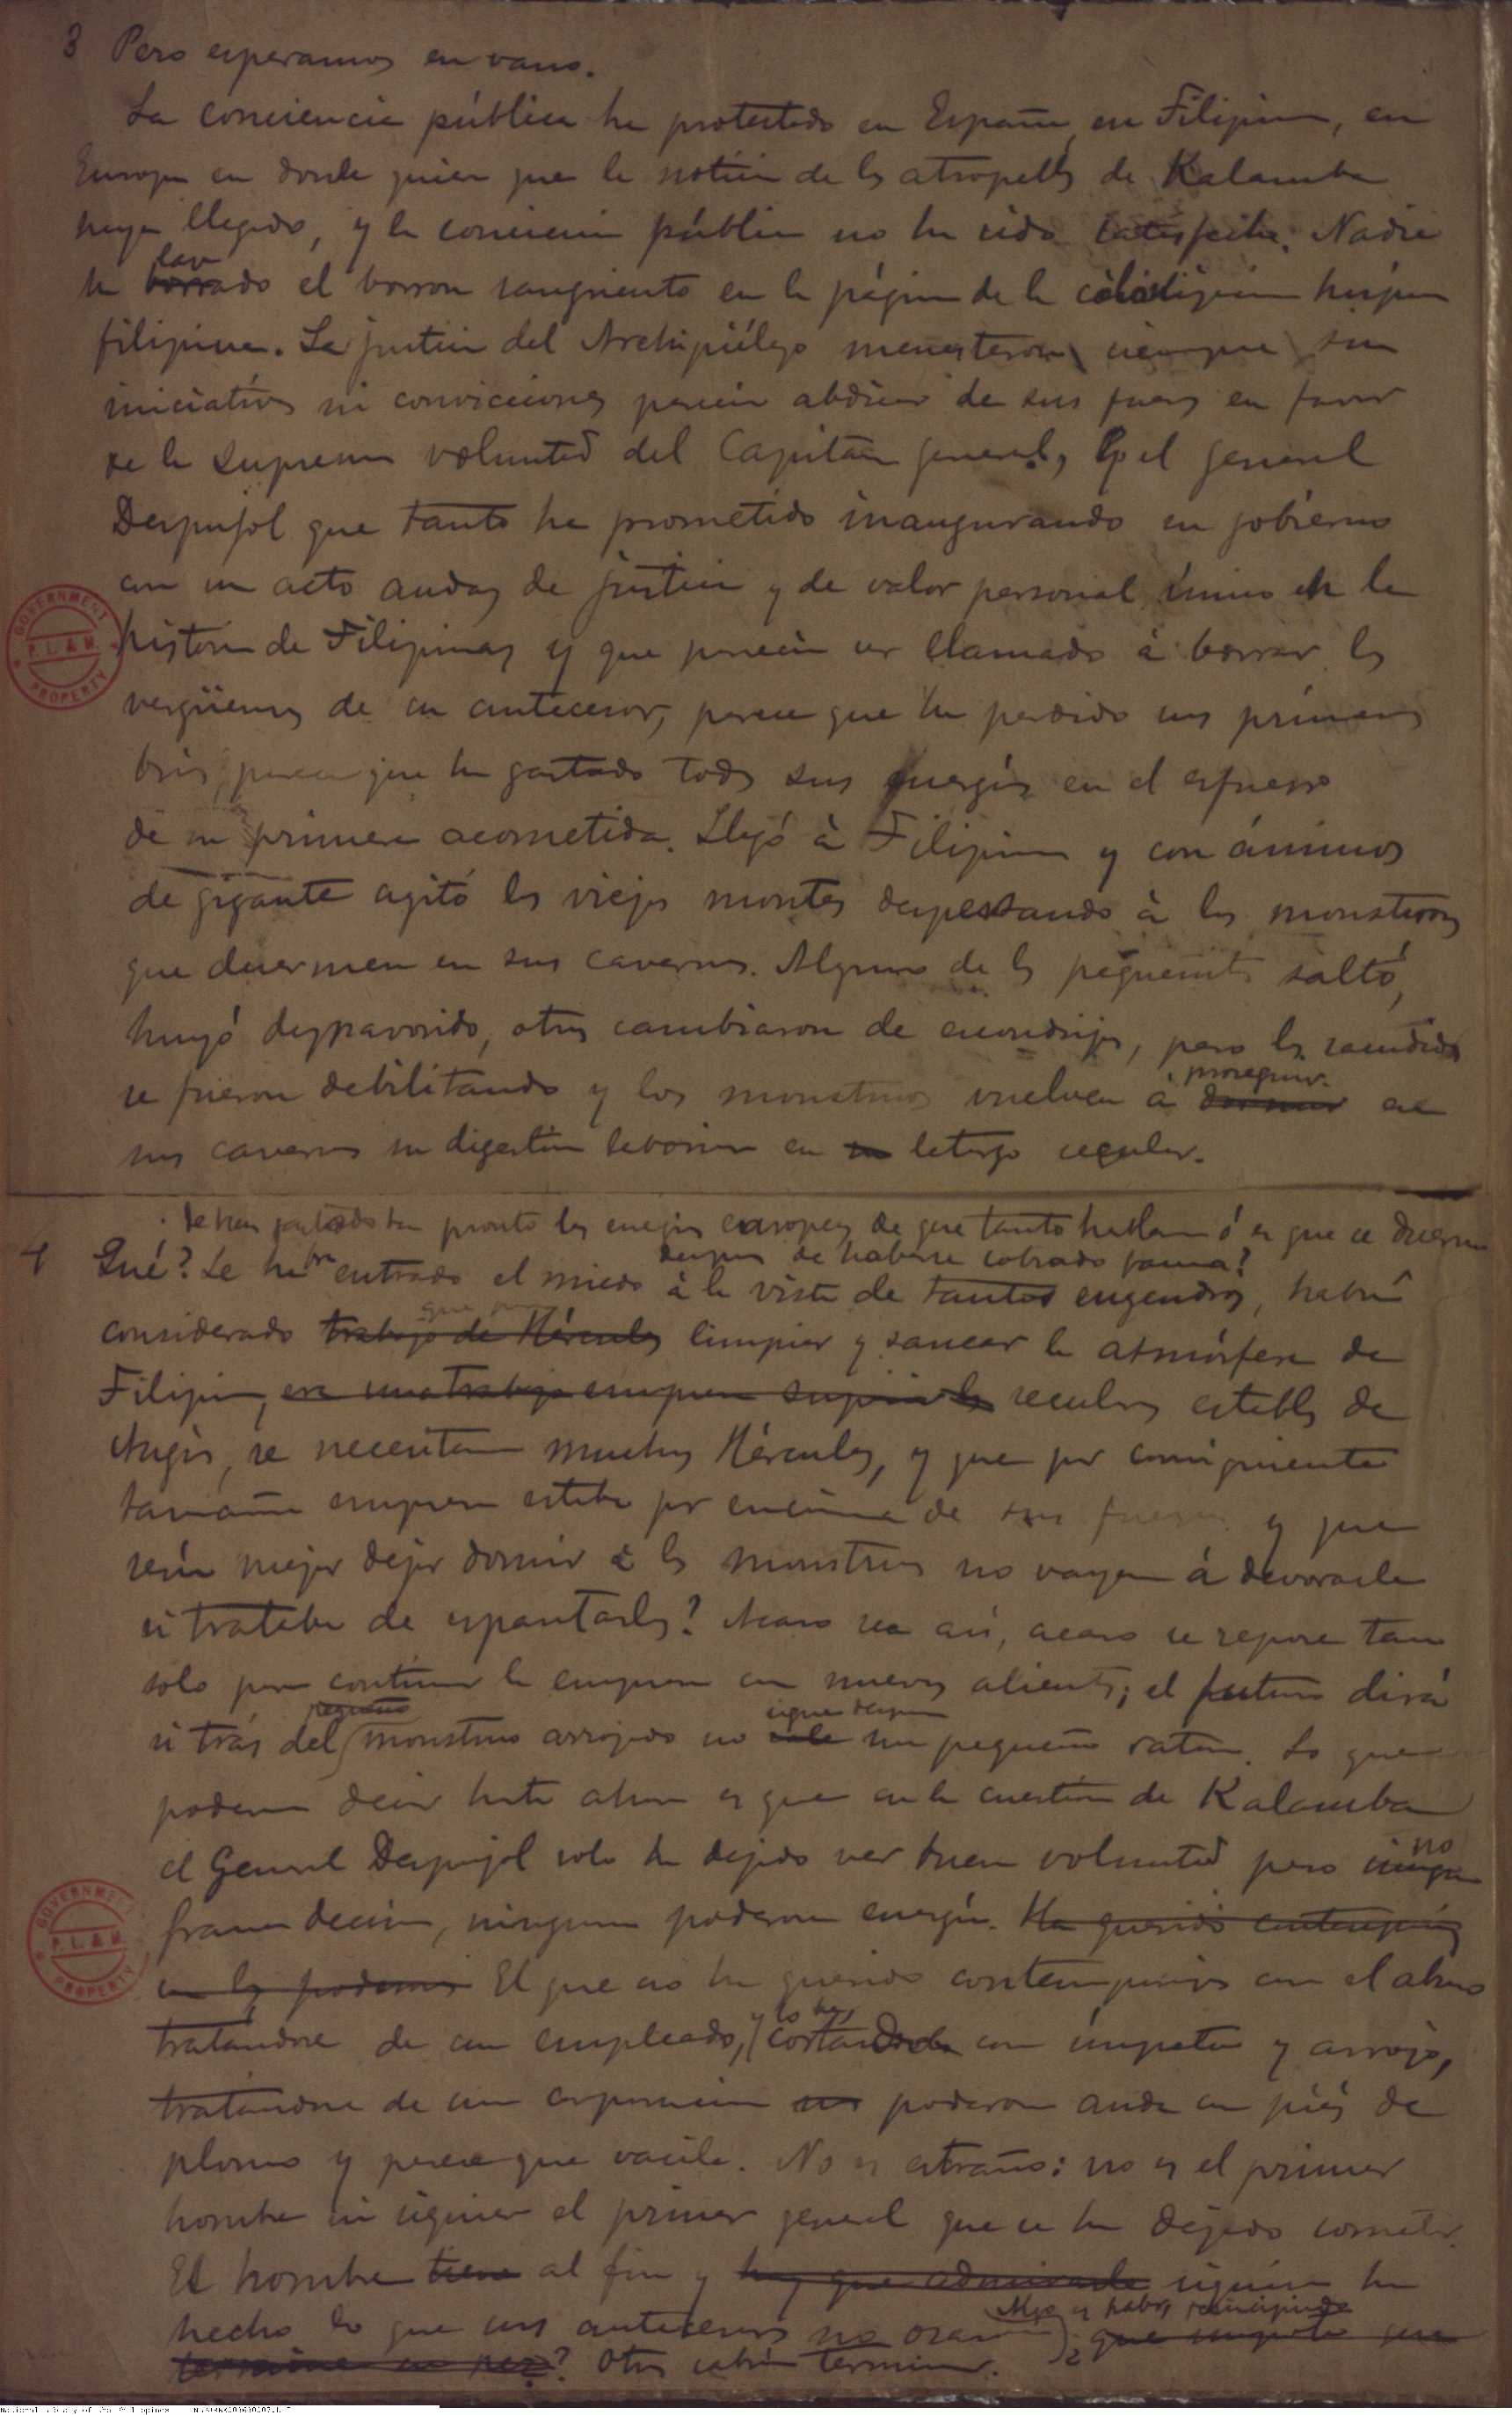 3 Pero esperamos en vano.
La conciencia pública ha protestado en España, en Filipinas, en
Europa en donde quiera que la noticia de los atropellos de Kalamba
haya llegado, y la conciencia pública no ha sido satisfecha. Nadie
lav
ha borrado el borron sangriento en la página de la hispano
filipina. La justicia del Archipiélago siempre sin
iniciativas ni convicciones parecia abdicar de sus fueros en favor
de la suprema voluntad del Capitan general, y el general
Despujol que tanto ha prometido inaugurando su gobierno
con un acto audaz de justicia y de valor personal único en la
historia de Filipinas y que parecia ser llamado á borrar las
vergüenzas de su antecesor, parece que ha perdido sus primeros
brios, parece que ha gastado todas sus energías en el esfuerzo
de su primera acometida. Llegó á Filipinas y con ánimos
de gigante agitó los viejos montes despertando á los monstruos
que duermen en sus cavernas. Alguno de los pequeñitos saltó,
huyó despavorido, otros cambiaron de escondrijo, pero las sacudidas
proseguir
se fueron debilitando y los monstruos vuelven á dormir en
sus cavernas su digestión laboriosa en su letargo secular.
Se han gastado tan pronto las energías europeas de que tanto hablan ó es que se duerme
despues de haberse cobrado fama?
4 Qué? Le habrá entrado el miedo á la vista de tantos engendros, habrá
que para
considerado trabajo de Hércules limpiar y sanear la atmósfera de
Filipinas, era una trabajo empresa seculares establos de
Augias, se necesitan muchos Hércules, y que por consiguiente
tamaña empresa estaba por encima de sus fuerzas y que
sería mejor dejar dormir á los monstruos no vayan á devorarle
si trataba de espantarlos? Acaso sea así, acaso se repose tan
solo para continuar la empresa con nuevos alientos; el futuro dirá
pequeño sigue despues
si trás del monstruo arrojado no sale un pequeño raton. Lo que
podemos decir hasta ahora es que en la cuestión de Kalamba
no
el General Despujol solo ha dejado ver buena voluntad pero ninguna
franca decisión, ninguna poderosa energía. Ha querido contemporizar
con los poderosos El que no ha querido contemporizar con el abuso
y lo ha
tratándose de un empleado, cortandole con ímpetu y arrojo,
tratándose de una corporacion poderosa anda con piés de
plomo y parece que vacila. No es estraño: no es el primer
hombre ni siquiera el primer general que se ha dejado someter.
El hombre tiene al fin y hay que admirarle siquiera ha
Algo es haber principiado
hecho lo que sus antecesores no osaron; ¿que importa que
termine su vez? Otros sabrán terminar.
GOVERNMENT PROPERTY
P.L. & M.
GOVERNMENT PROPERTY
P.L. & M.
National Library of the Philippines